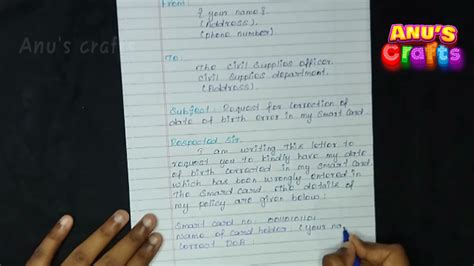 Anu's crafts
ANU'S
Crafts
From:
{ your name }.
(Address).
(phone number)
To:
The civil supplies officer.
civil supplies department.
(Address).
Subject: Request for correction of
date of birth error in my Smart Card.
Respected Sir,
I am writing this letter to
request you to kindly have my date
of birth corrected in my Smart Card.
which has been wrongly entered in
the Smart card. The details of
my policy are given below:
Smart card no:
name of card holder: (your na
correct DOB: